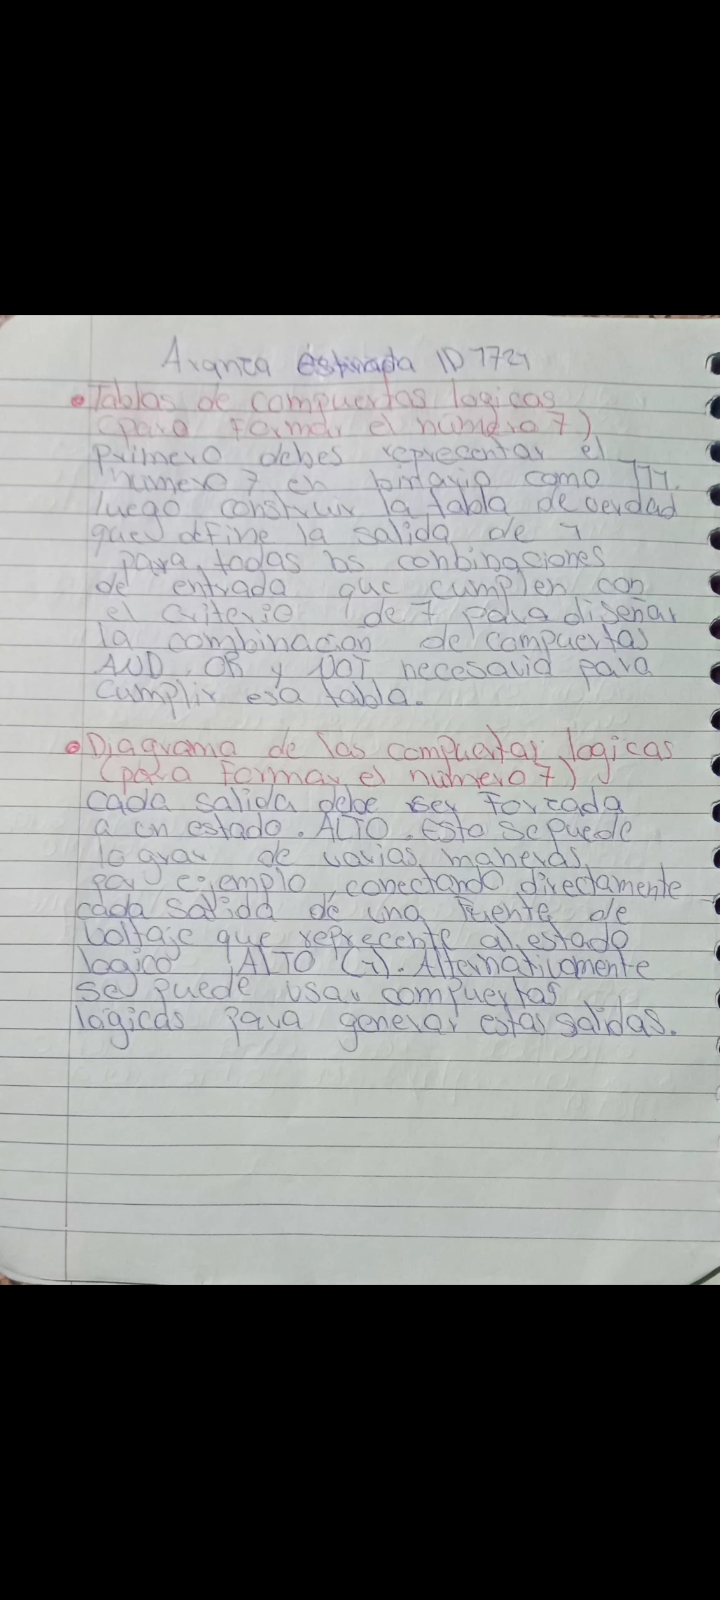 Aranza Estrada ID 1721
Tablas de compuertas logicas
(para formar el número 7)
Primero debes reprecentar el
número 7 en binario como 111.
luego construir la tabla de verdad
que define la salida de 1
para todas las conbinaciones
de entrada que cumplen con
el criterio de 7 para diseñar
la combinacion de compuertas
AND, OR y NOT necesaria para
cumplir esa tabla.
Diagrama de las compuertas logicas
(para formar el número 7)
cada salida debe ser Forzada
a un estado. ALTO. Esto se puede
lograr de varias maneras,
por ejemplo, conectando directamente
cada salida de una fuente de
Voltaje que reprecente al estado
logico ALTO (1). Alternativamente
se puede usar compuertas
lógicas para generar estas salidas.